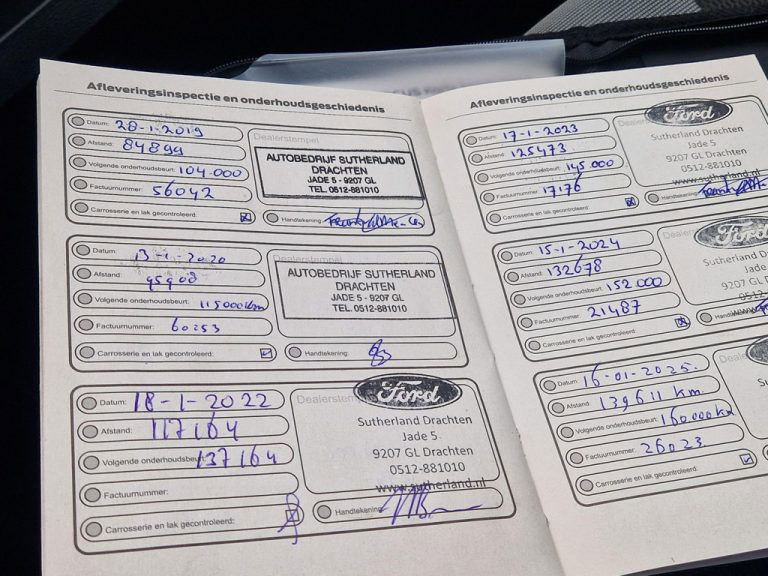 Afleveringsinspectie en onderhoudsgeschiedenis
Datum: 28-1-2019
Afstand: 84899
Volgende onderhoudsbeurt: 104.000
Factuurnummer: 56042
Carrosserie en lak gecontroleerd:
Dealerstempel
AUTOBEDRIJF SUTHERLAND
DRACHTEN
JADE 5 - 9207 GL
TEL. 0512-881010
Handtekening:
Datum: 13-1-2020
Afstand: 95908
Volgende onderhoudsbeurt: 115000km
Factuurnummer: 60253
Carrosserie en lak gecontroleerd:
Dealerstempel
AUTOBEDRIJF SUTHERLAND
DRACHTEN
JADE 5 - 9207 GL
TEL. 0512-881010
Handtekening:
Datum: 18-1-2022
Afstand: 117164
Volgende onderhoudsbeurt: 137164
Factuurnummer:
Carrosserie en lak gecontroleerd:
Ford
Sutherland Drachten
Jade 5
9207 GL Drachten
0512-881010
www.sutherland.nl
Handtekening:
Afleveringsinspectie en onderhoudsgeschiedenis
Datum: 17-1-2023
Afstand: 125473
Volgende onderhoudsbeurt: 145.000
Factuurnummer: 17176
Carrosserie en lak gecontroleerd:
Ford
Sutherland Drachten
Jade 5
9207 GL Drachten
0512-881010
www.sutherland.nl
Handtekening:
Datum: 15-1-2024
Afstand: 132678
Volgende onderhoudsbeurt: 152.000
Factuurnummer: 21487
Carrosserie en lak gecontroleerd:
Ford
Sutherland
Jade
9207 GL
0512
Datum: 16-01-2025.
Afstand: 139611 km.
Volgende onderhoudsbeurt: 160000km
Factuurnummer: 26023
Carrosserie en lak gecontroleerd:
Sutherland
9207 GL
0512-8
www.suther
Handtekening: